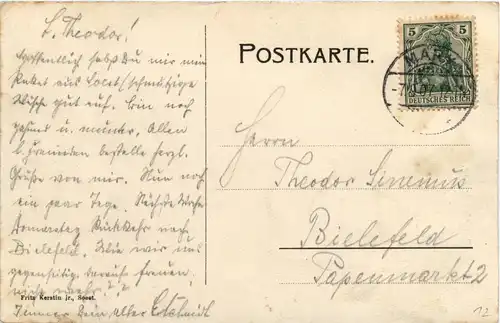 L. Theodor!
Hoffentlich hebst Du mir mein
Paket aus Soest/schmutzige
Wäsche gut auf. Bin noch
gesund u. munter. Allen
b. Freunden bestelle herzl.
Grüße von mir. Nun noch
ein paar Tage. Nächste Woche
Donnerstag Rückkehr nach
Bielefeld. Wie wir uns
gegenseitig darauf freuen,
nicht wahr??
Immer Dein alter
Fritz Kerstin jr., Soest.
POSTKARTE.
5 5
DEUTSCHES REICH
MARK
Herrn
Theodor Sinemus
Bielefeld
Papenmarkt 2
12